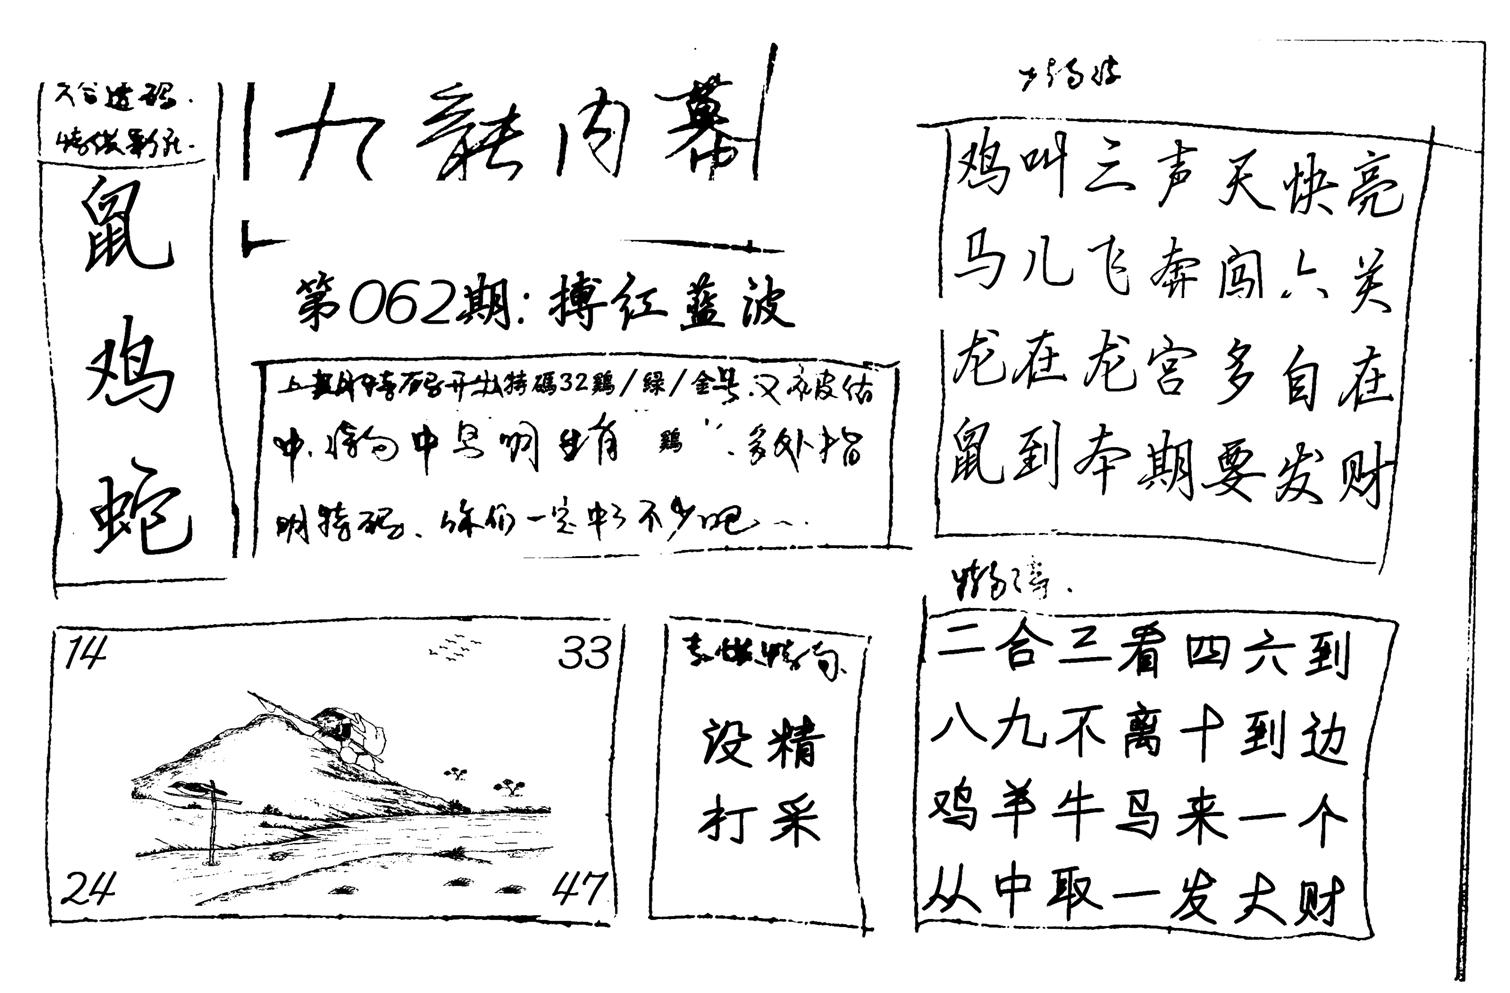 九龍内幕
鼠
鸡
蛇
第062期:搏红蓝波
上期特码开出特碼32鷄/绿/金号.又被估
中.特肖中已明出有"鷄".多处指
明特码、你们一定中了不少吧...
鸡叫三声天快亮
马儿飞奔闯六关
龙在龙宫多自在
鼠到本期要发财
14
33
24
47
没精
打采
二合三看四六到
八九不离十到边
鸡羊牛马来一个
从中取一发大财